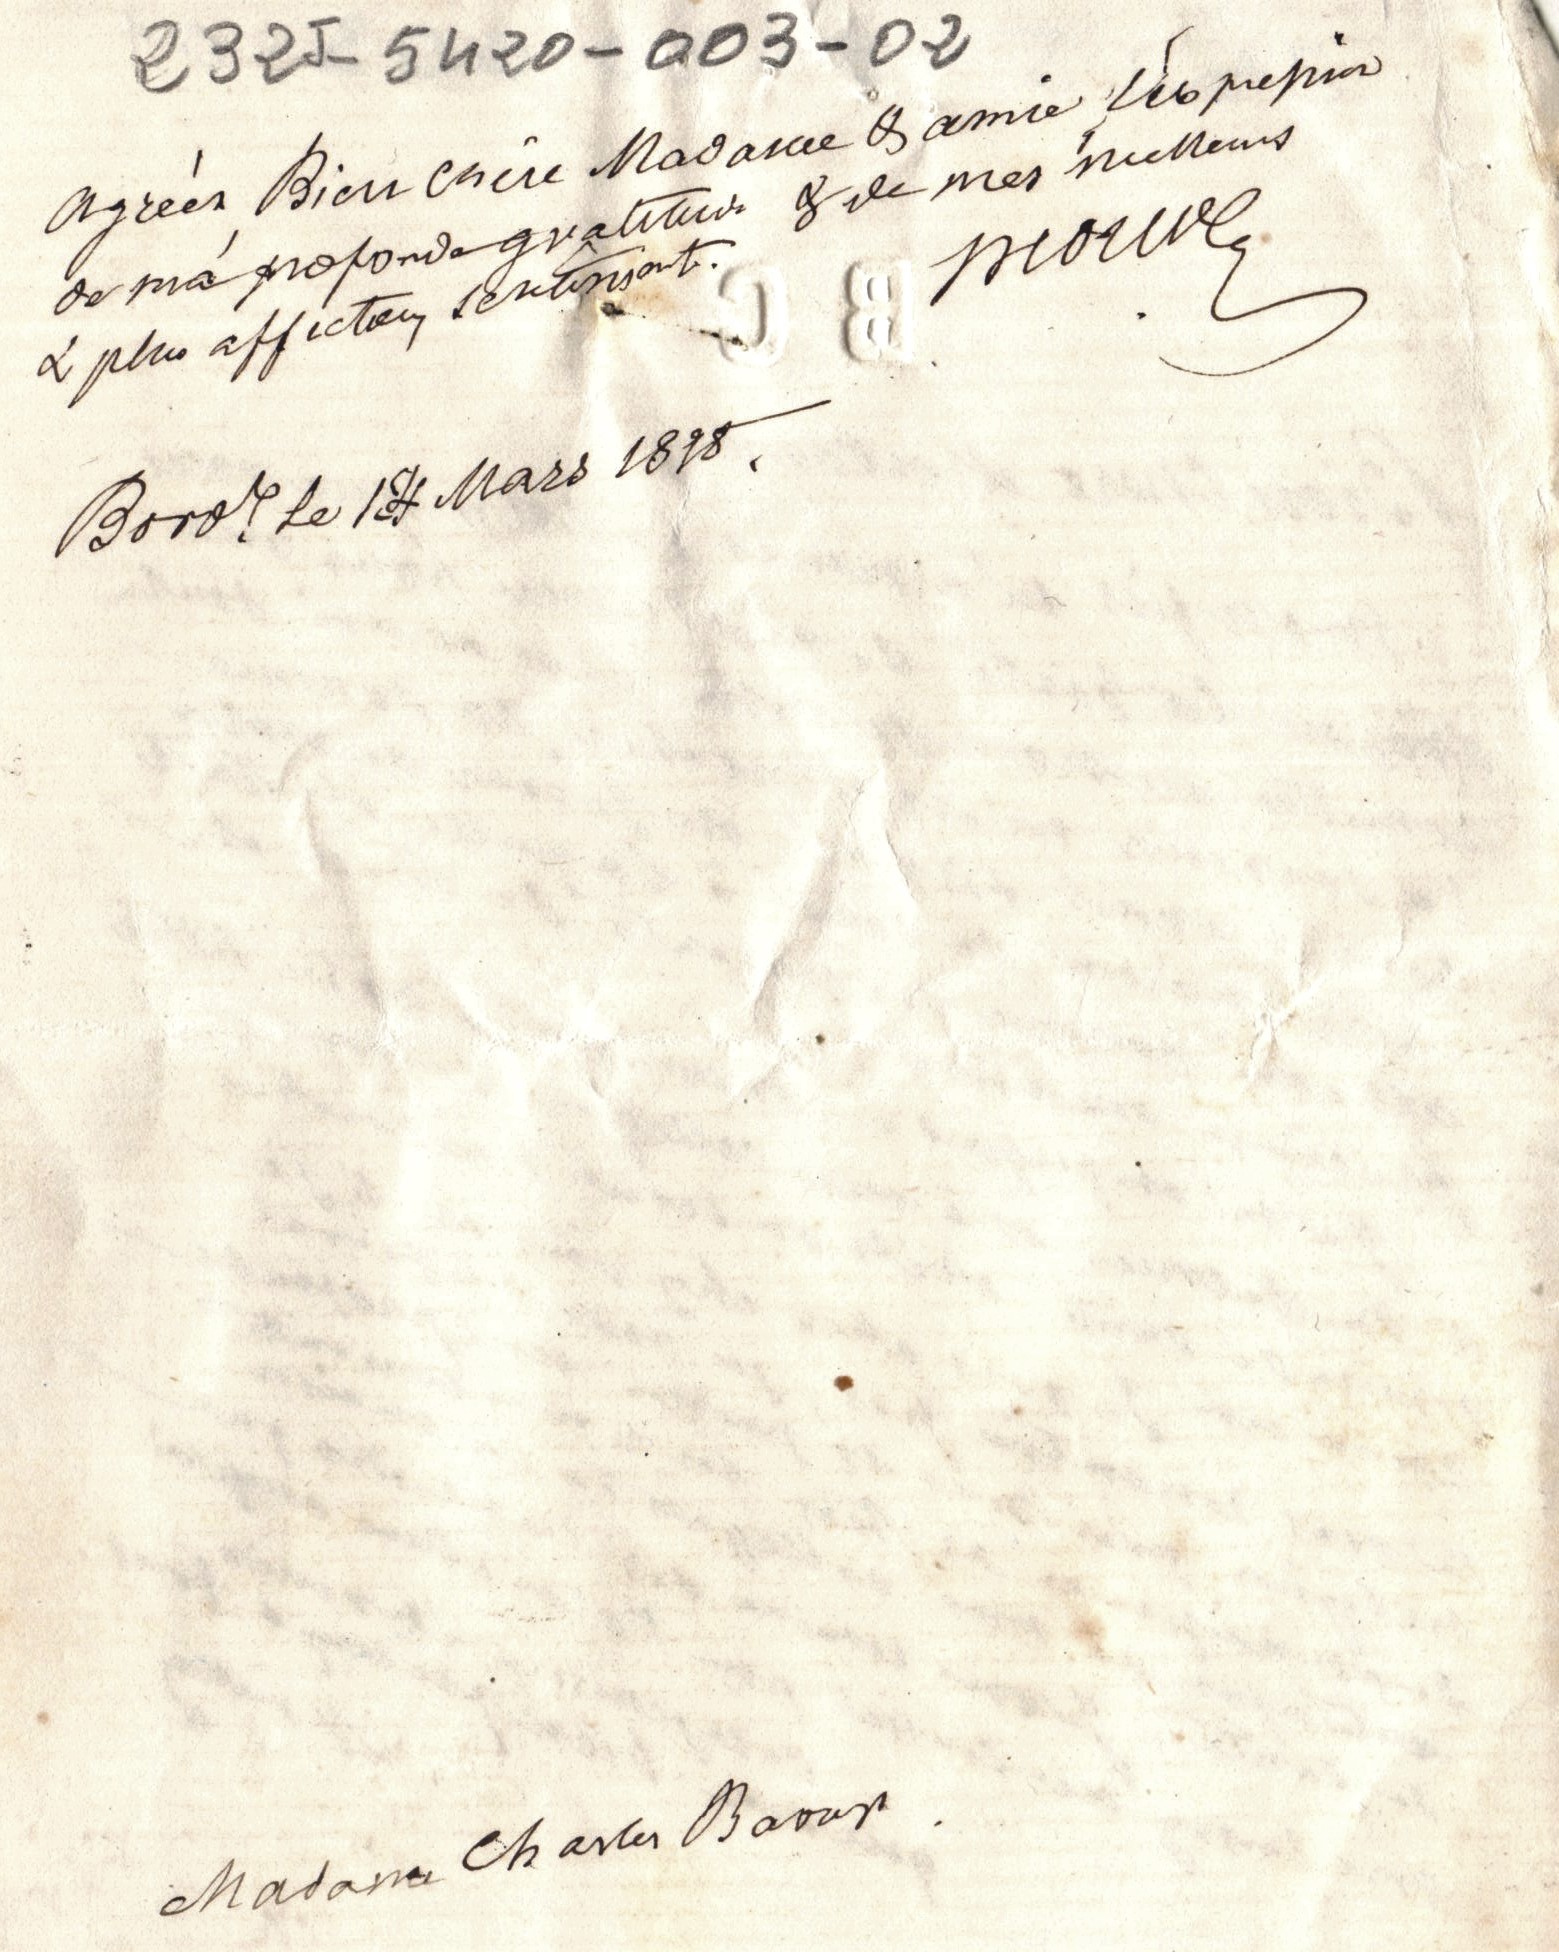 2325-5420-003-02
Agréer Bien Chère Madame & amie l'expression
de ma profonde gratitude & de mes meilleurs
& plus affectueux sentiments.
Bord.x Le Mars 1898.
Madame Charles